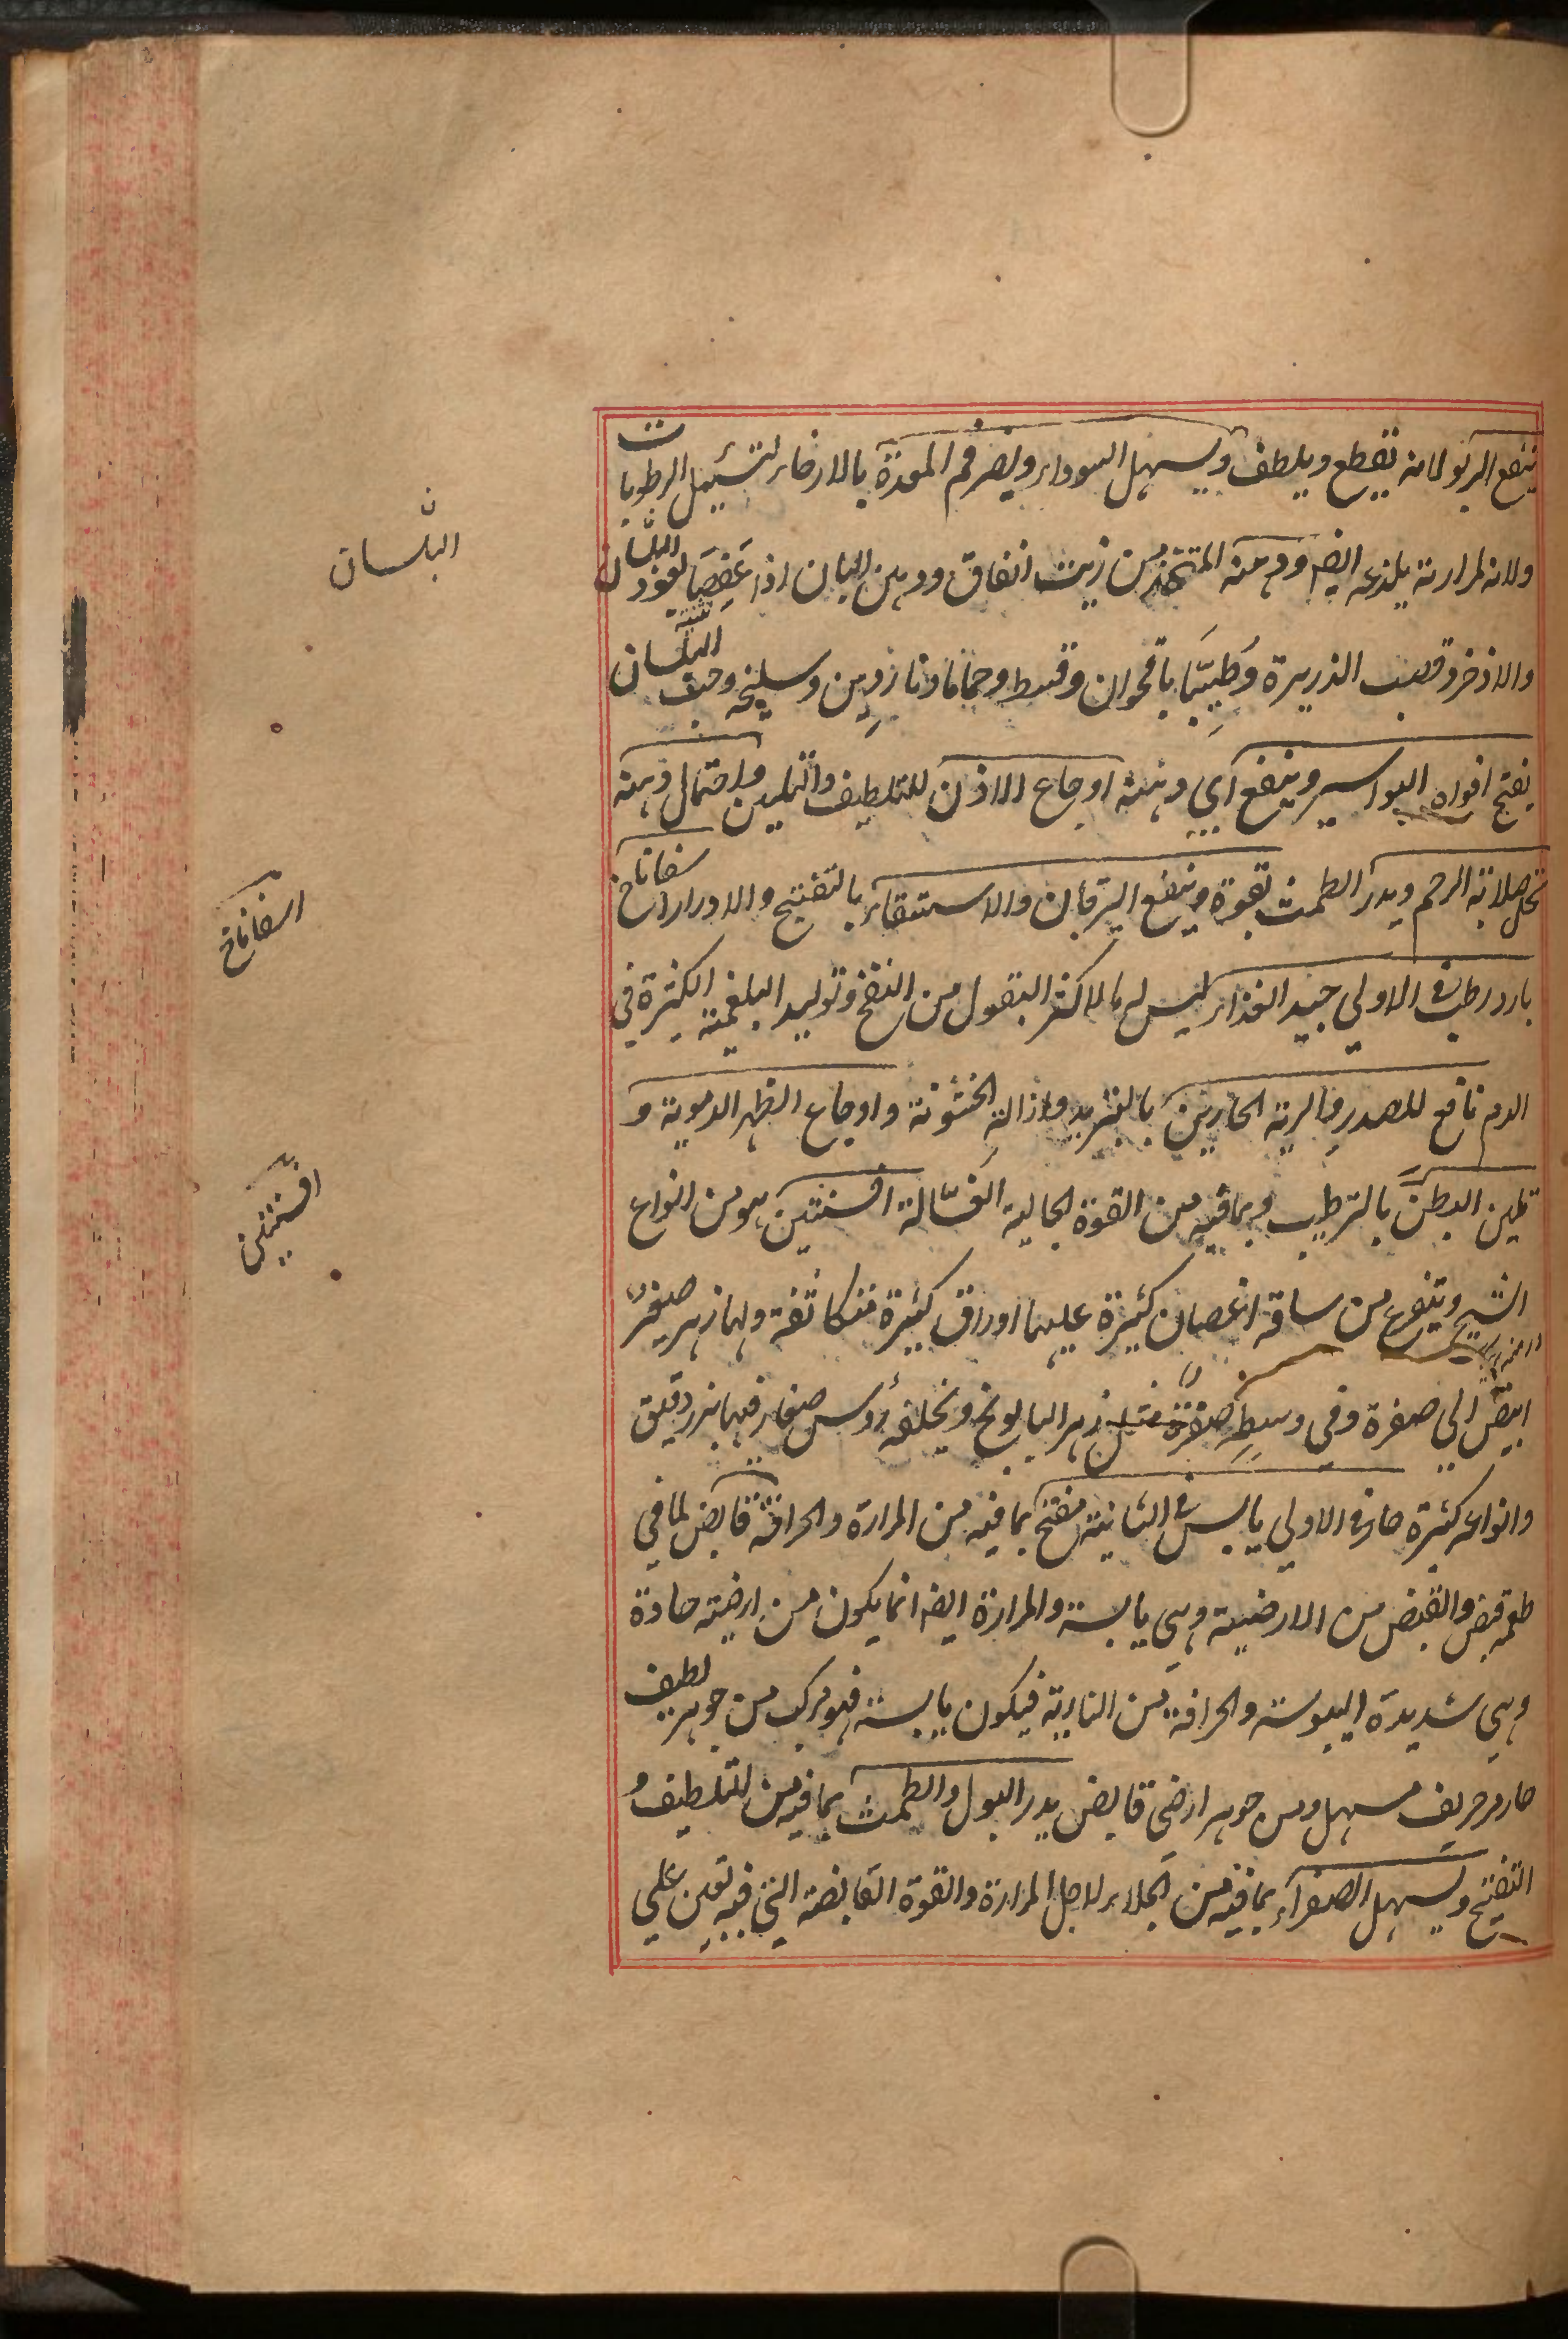 ينفع الربو لانه يقطع ويلطف ويسهل السوداء ويضر فم المعدة بالارخاء لتسييل الرطوبات
ولانه لمرارته يلذعه ايضا ودهنه المتخذ من زيت انفاق ودهن البان اذا عفصا بعود البلسان
والاذخر وقصب الذريرة وطيبا باقحوان وقسط وحماما وناردين وسليخه وحب البلسان
يفتح افواه البواسير وينفع اي دهنه اوجاع الاذن للتلطيف والتليين واحتمال دهنه
يحل صلابة الرحم ويدر الطمث بقوة وينفع اليرقان والاستسقاء بالتفتيح والادرار اسفاناخ
بارد رطب في الاولى جيد الغذاء ليس له ما لاكثر البقول من النفخ وتوليد البلغمية الكثيرة في
الدم نافع للصدر والرية الحارين بالتبريد وازالة الخشونة واوجاع الظهر الدموية و
تليين البطن بالترطيب وبما فيه من القوة الجالية الغسالة افسنتين هو من انواع
الشيح ويتفرع من ساقه اغصان كثيرة عليها اوراق كثيرة متكاثفة ولها زهر صغير
ابيض الى صفرة وفي وسطه صفرة مثل زهر البابونج ويخلفه رؤس صغار فيها بزر دقيق
وانواعه كثيرة حار في الاولى يابس في الثانية مفتح بما فيه من المرارة والحرافة قابض لما في
طعمه قبض والقبض من الارضية وهي يابسة والمرارة ايضا انما يكون من ارضية حادة
وهي شديدة اليبوسة والحرافة من النارية فيكون يابسة فهو مركب من جوهر لطيف
حار حريف مسهل ومن جوهر ارضي قابض يدر البول والطمث بما فيه من التلطيف و
التفتيح ويسهل الصفراء بما فيه من الجلاء لاجل المرارة والقوة القابضة التي فيه تعين على
البلسان
اسفاناخ
افسنتين